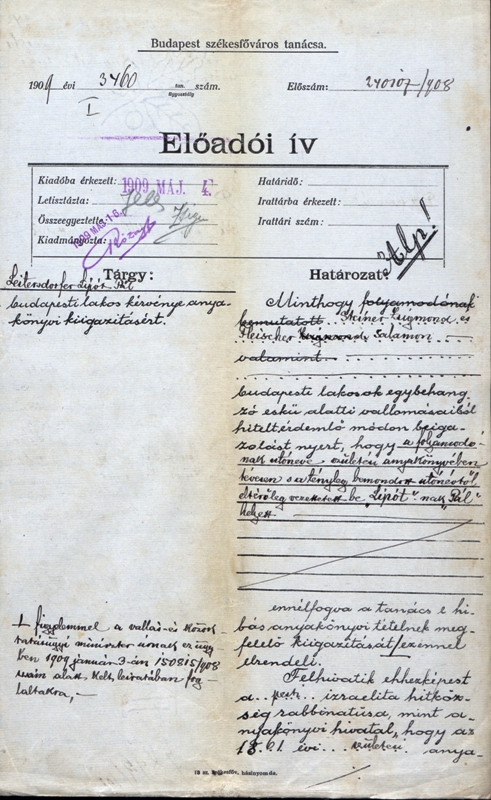 Budapest székesfőváros tanácsa.
1909 évi 3460 tan. ügyosztály szám. Előszám: 240107/908
I
Előadói ív
Kiadóba érkezett: 1909 MÁJ. 4. Határidő:
Letisztázta: Irattárba érkezett:
Összeegyeztette: Irattári szám:
Kiadmányozta: 1909 MÁJ. 16.
Tárgy: Határozat:
Leitersdorfer Lipót Pál
budapesti lakos kérvénye anya-
könyvi kiigazításért.
Minthogy folyamodónak
bemutatott Steiner Zsigmond és
Fleischer Salamon
valamint
budapesti lakosok egybehang
zó eskü alatti vallomásaiból
hitelt érdemlő módon beiga-
zolást nyert, hogy a folyamodó-
nak utóneve születési anyakönyvében
tévesen s a tényleg bemondott utónévtől
eltérőleg vezettetett be "Lipót"-nak "Pál"
helyett
ennélfogva a tanács e hi
bás anyakönyvi tételnek meg-
felelő kiigazítását ezennel
elrendeli.
Felhivatik ehhezképest
a pesti izraelita hitköz-
ség rabbinatusa, mint a-
nyakönyvi hivatal, hogy az
18 61 évi születési anya-
figyelemmel a vallás- és közok
tatásügyi miniszter úrnak ez ügy
ben 1909 január 3-án 150815/908
szám alatt kelt leiratában fog-
laltakra,
Bp. székesfőv. házinyomda.